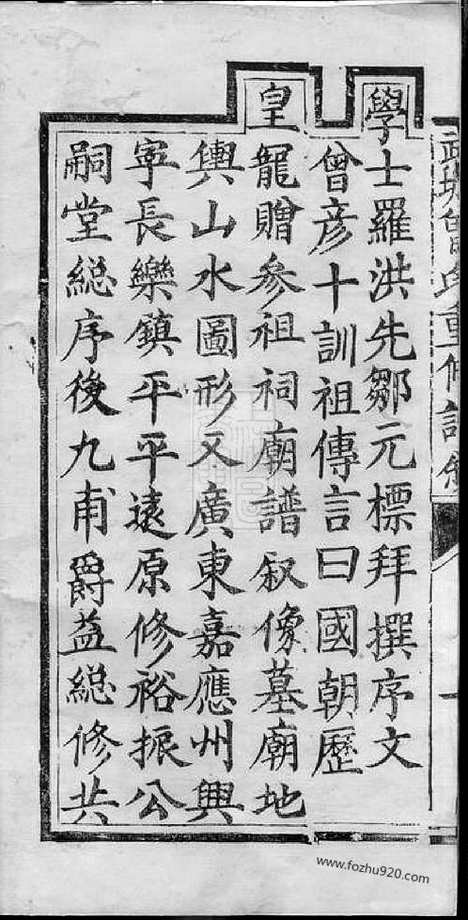 學士羅洪先鄒元標拜撰序文
曾彦十訓祖傳言曰國朝歷
皇寵贈參祖祠廟譜叙像墓廟地
輿山水圖形又廣東嘉應州興
寜長樂鎮平平遠原修裕振公
嗣堂総序後九甫爵益総修共
www.fozhu920.com